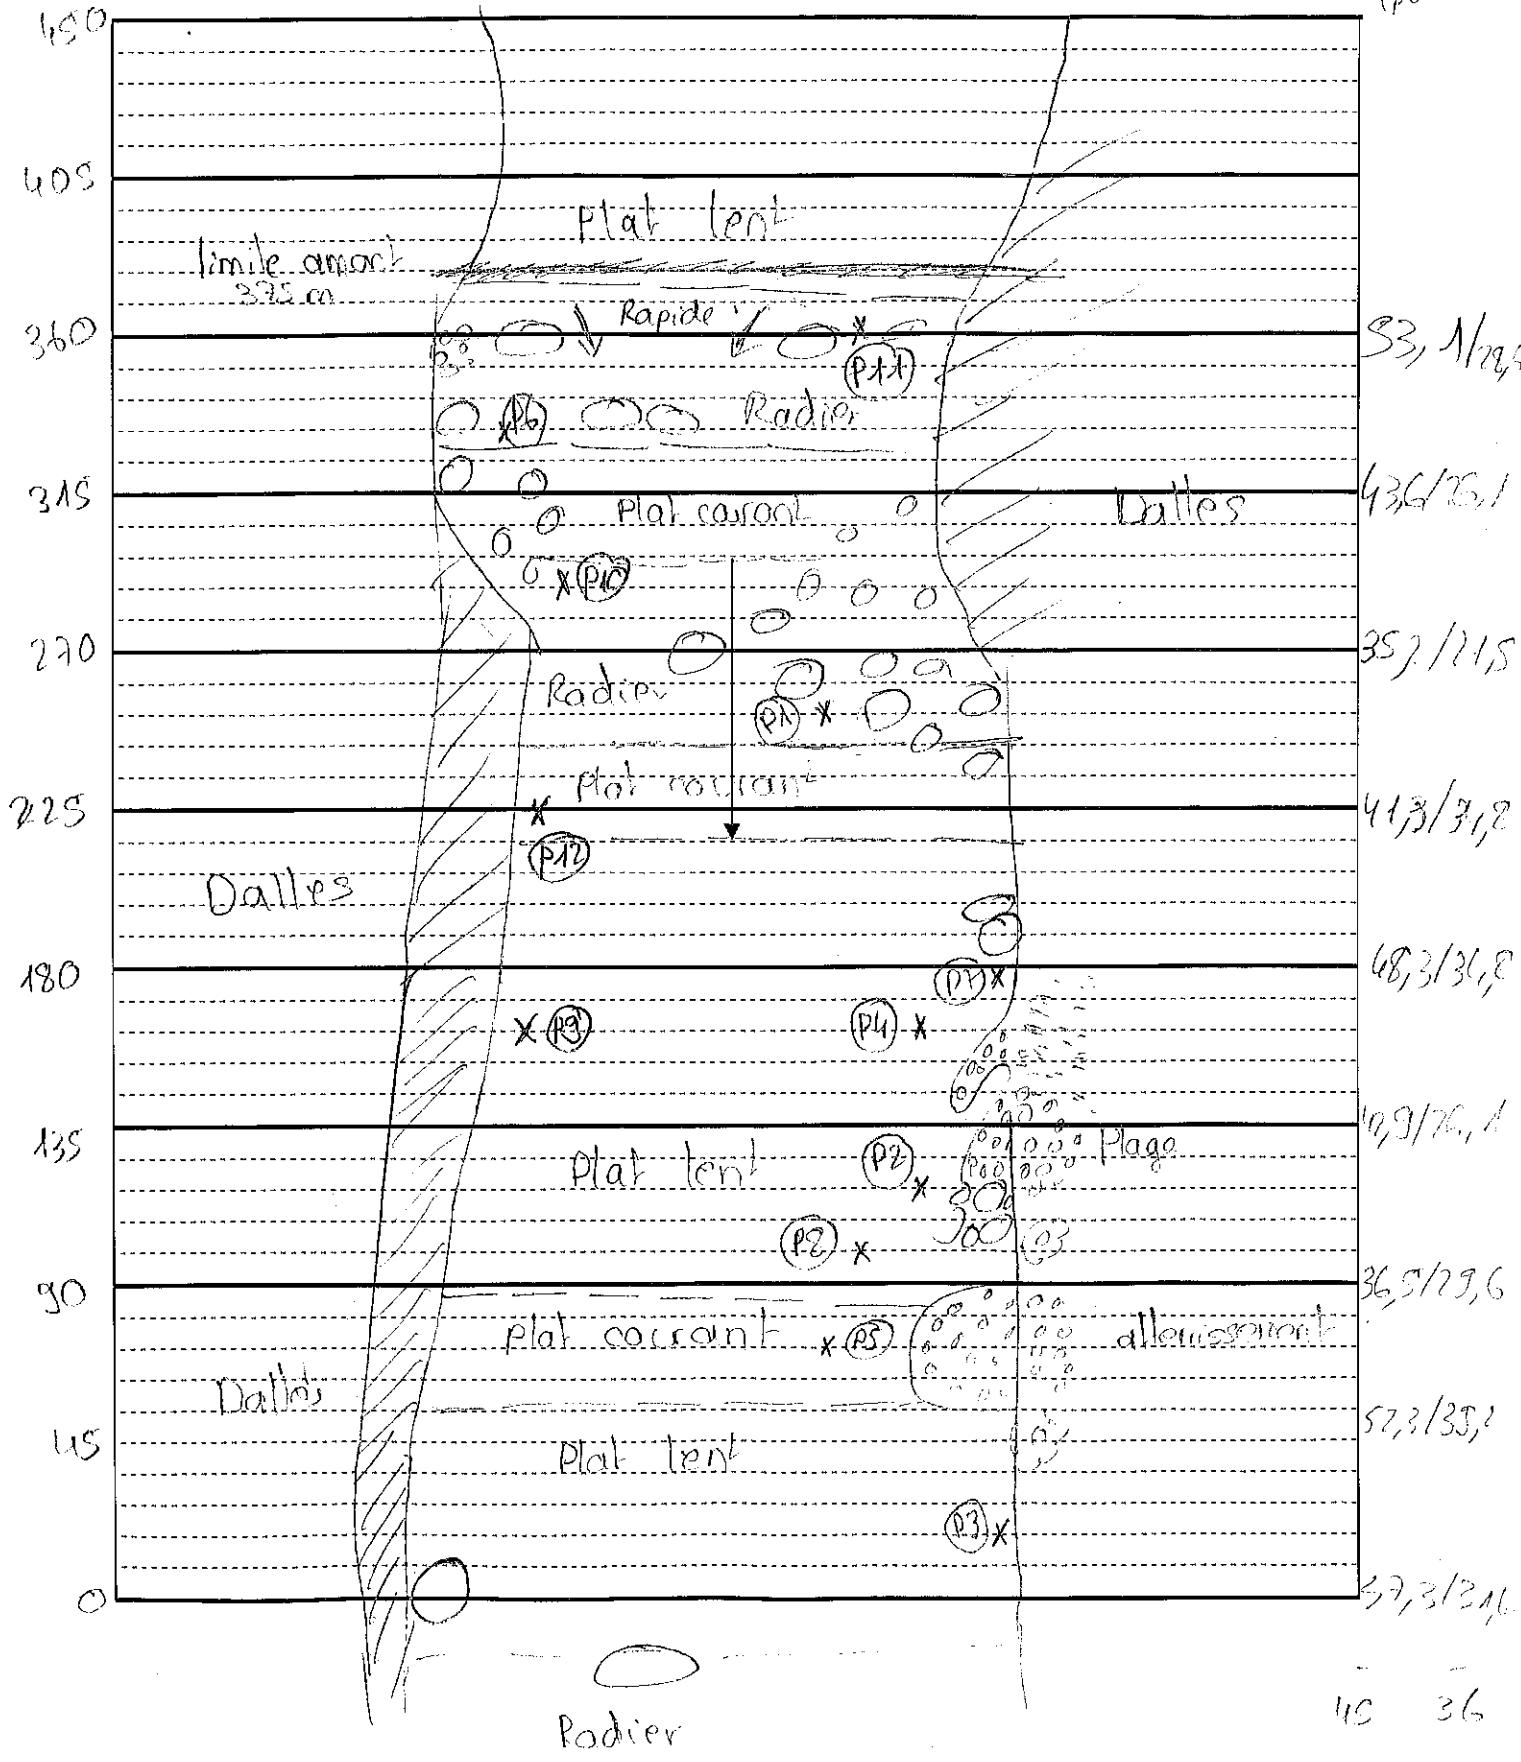 450
405
Plat lent
limite amont
375 m
Rapide
360
P11
P6
Radier
315
Plat courant
Dalles
43,6/26,1
P10
270
Radier
P1
Plat courant
225
P12
Dalles
180
P7
48,3/34,8
P9
P4
135
Plat lent
P2
Plage
P2
90
36,5/29,6
Plat courant
P5
atterrissement
Dalles
45
Plat lent
P3
0
Radier
36